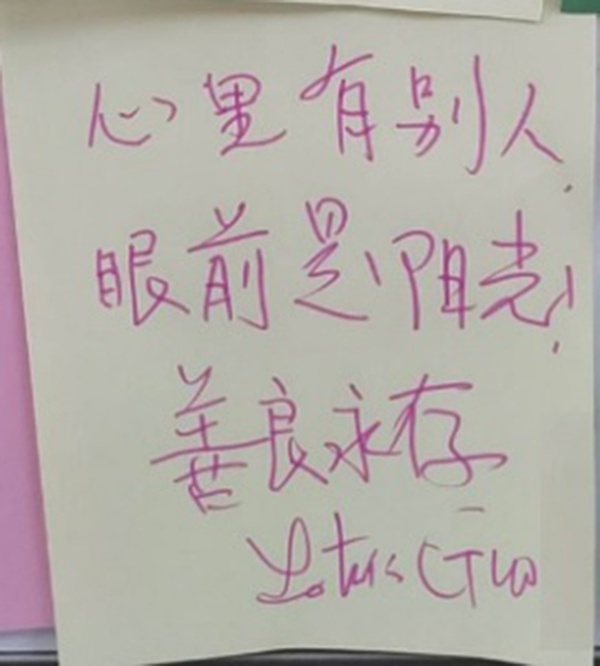 心里有别人.
眼前是阳光!
善良永存
Lotus Guo